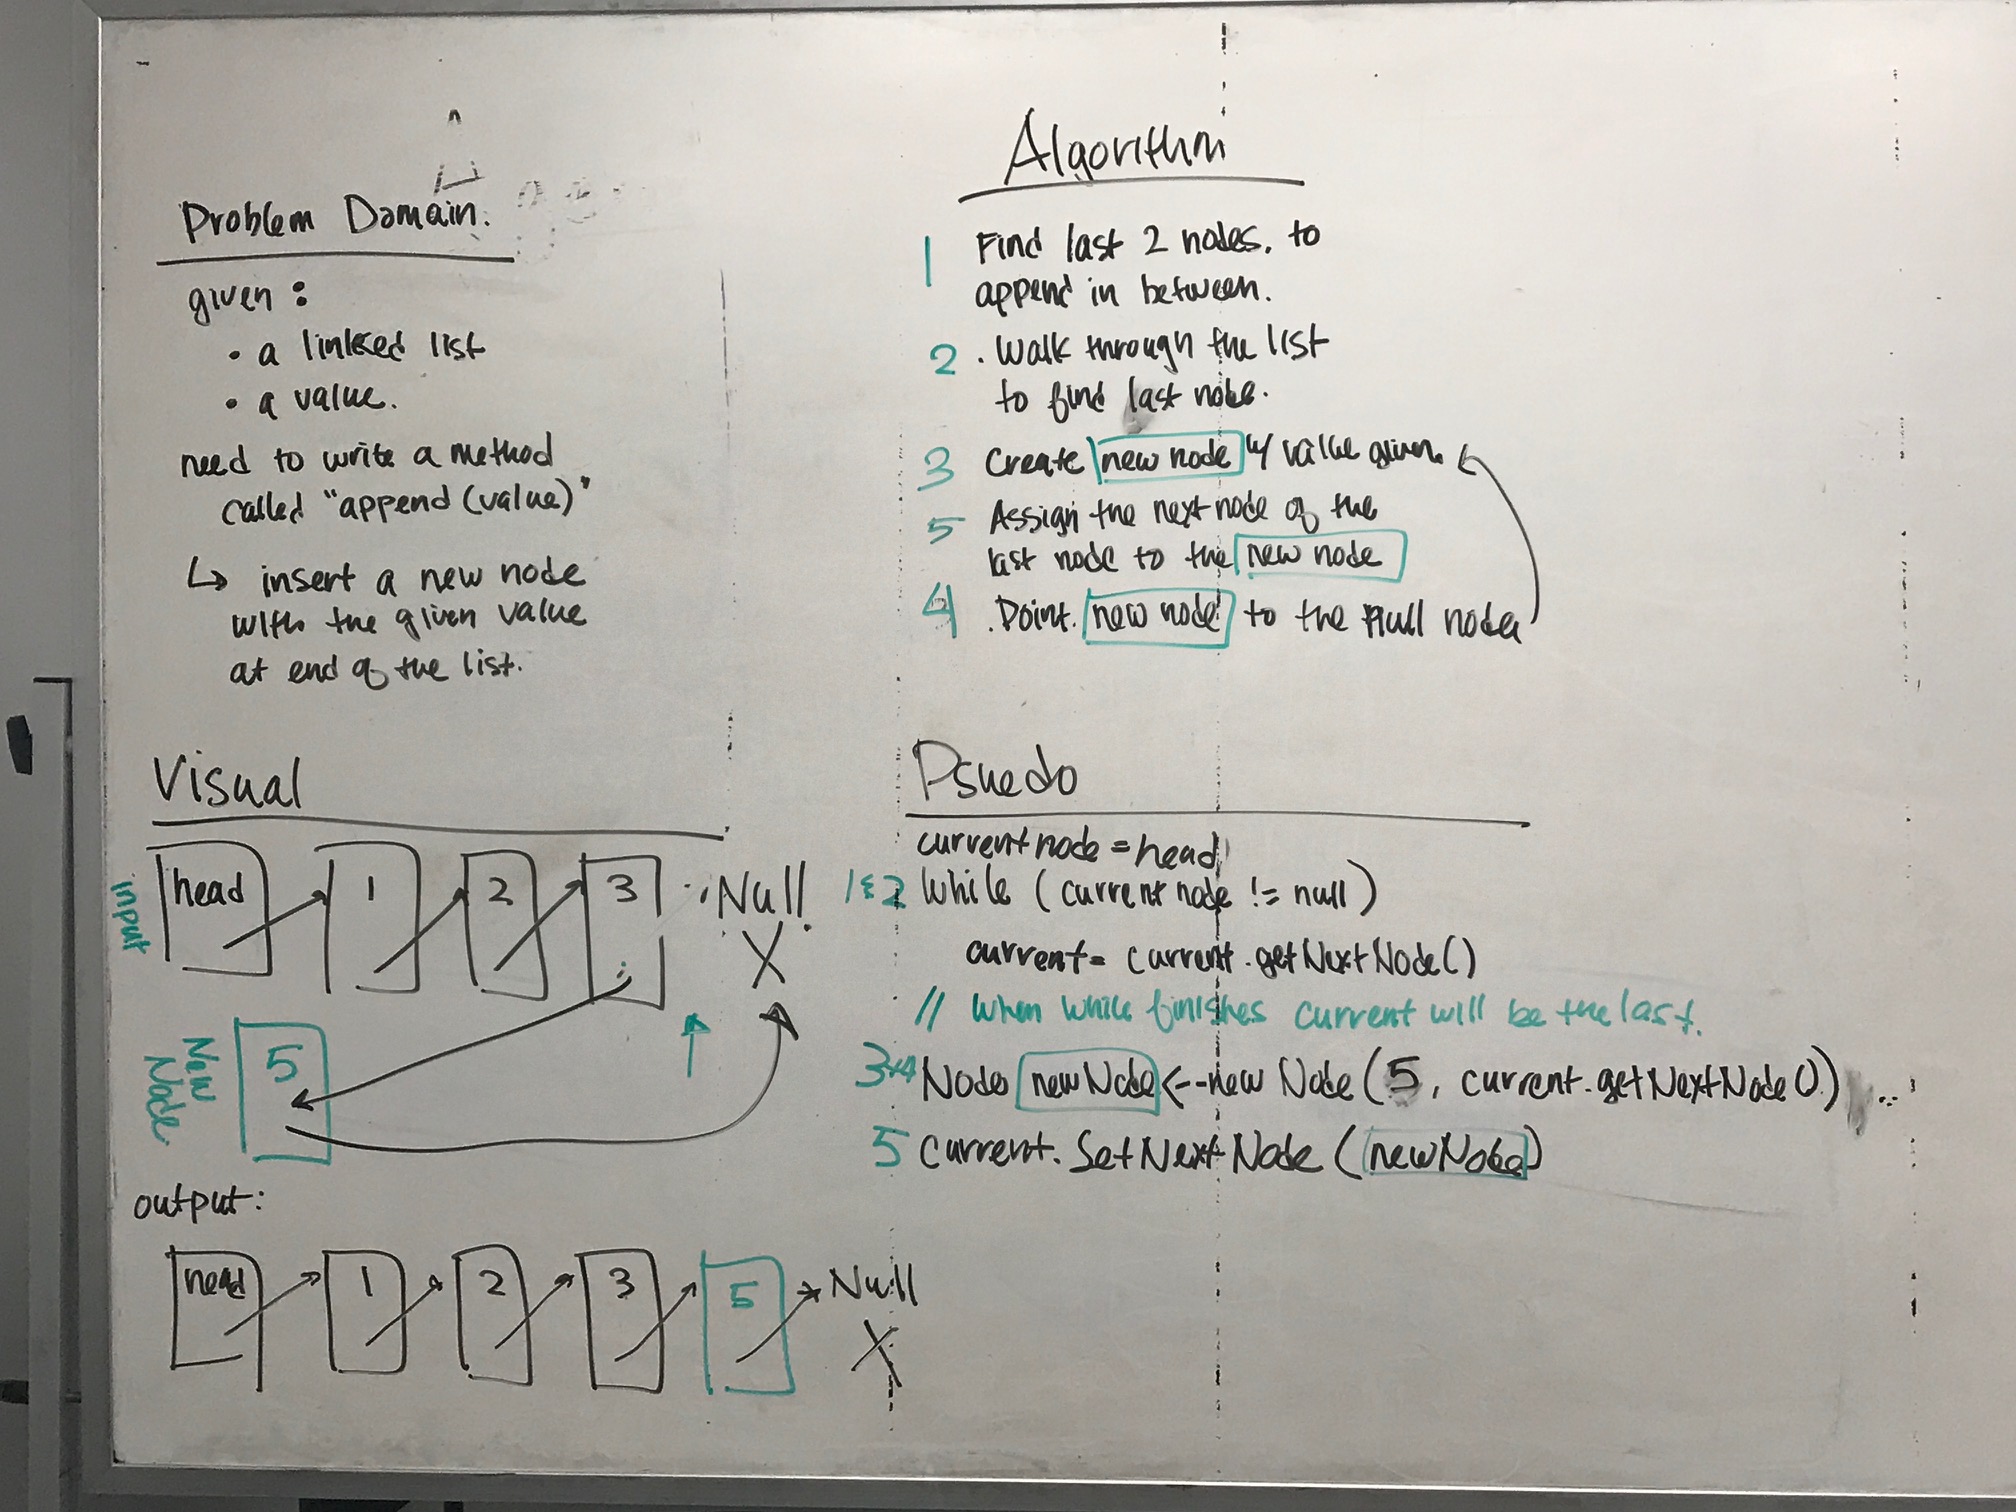 Problem Domain.
given :
• a linked list
• a value.
need to write a method
called "append (value)"
↳ insert a new node
with the given value
at end of the list.
Algorithm
1 Find last 2 nodes. to
append in between.
2 . Walk through the list
to find last node.
3 Create new node w/ value given.
5 Assign the next node of the
last node to the new node
4 . Point. new node to the Null node
Visual
input
head 1 2 3 Null
X
New
Node
5
output:
head 1 2 3 5 Null
X
Psuedo
current node = head
1&2 While ( current node != null )
current = current.getNextNode()
// When while finishes current will be the last.
3+4 Node newNode <-- new Node ( 5 , current.getNextNode().)
5 current. SetNextNode ( newNode )